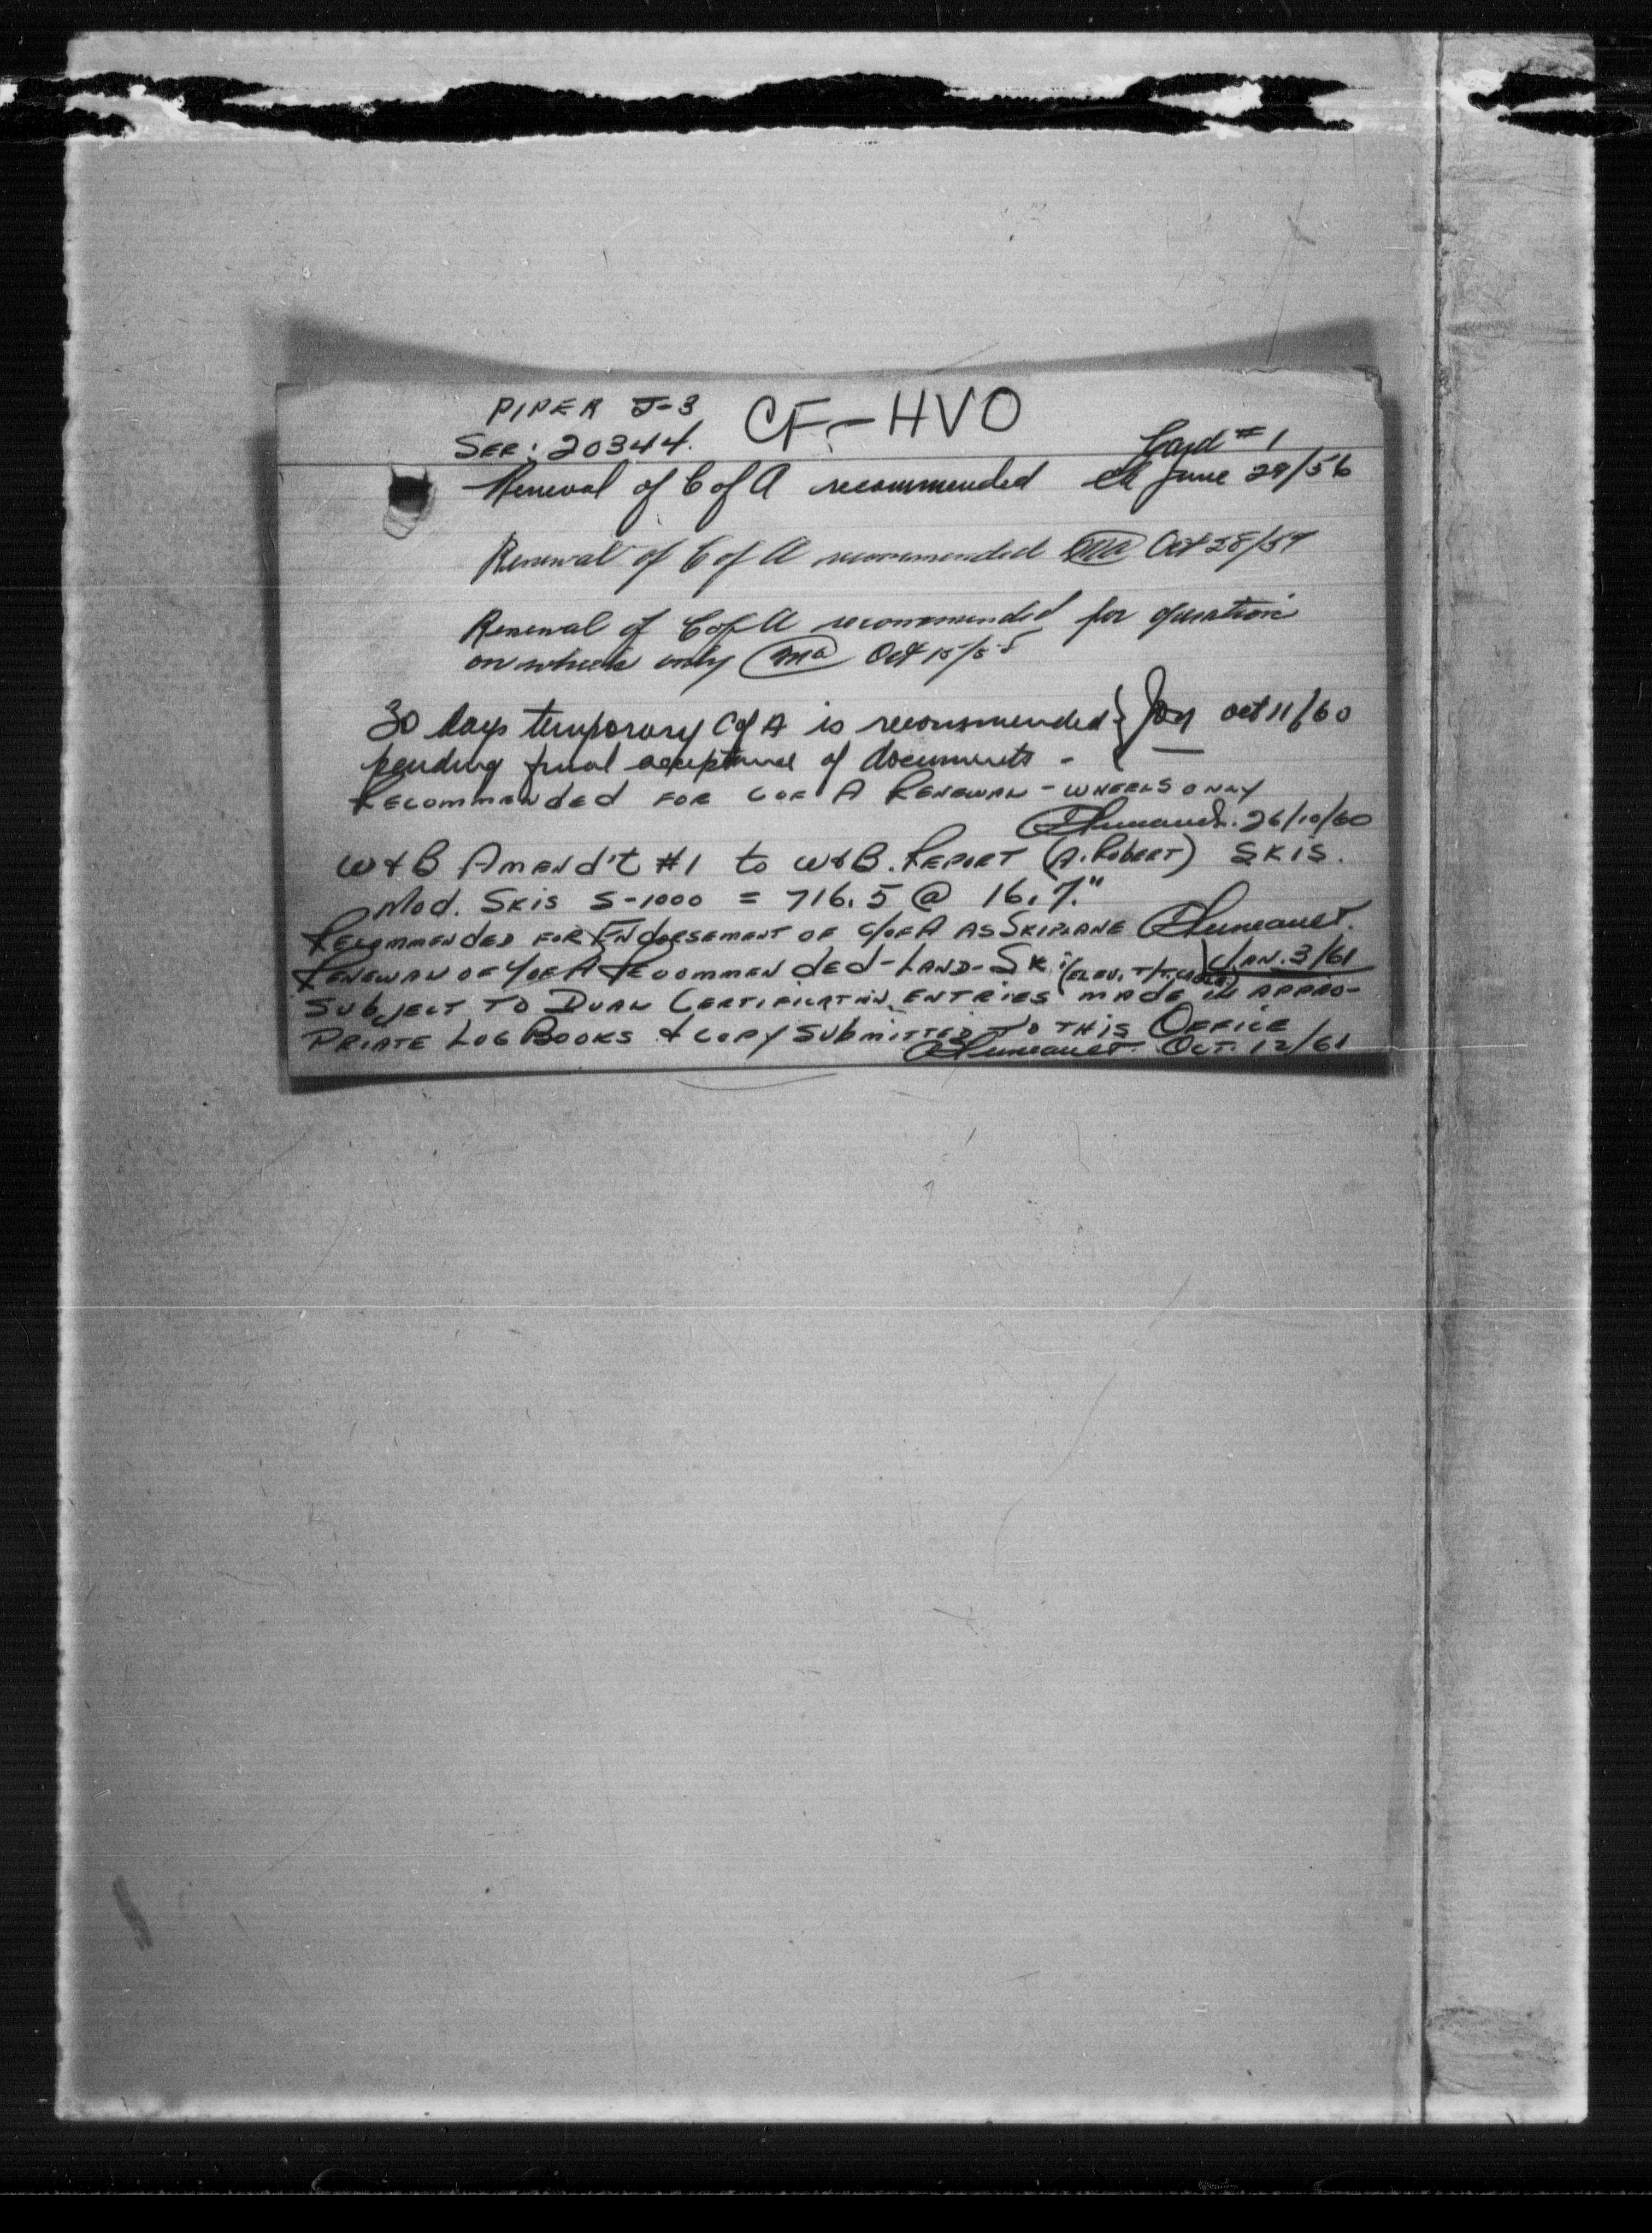 PIPER J-3 CF-HVO
SER: 20344. Card #1
Renewal of C of A recommended June 29/56
Renewal of C of A recommended Oct 28/57
Renewal of C of A recommended for operation
on wheels only Oct 15/58
30 days temporary C of A is recommended } Oct 11/60
pending final acceptance of documents -
RECOMMENDED FOR C OF A RENEWAL - WHEELS ONLY
26/10/60
W & B AMEND'T #1 to W & B. REPORT (A. ROBERT) SKIS.
Mod. SKIS S-1000 = 716.5 @ 16.7"
RECOMMENDED FOR ENDORSEMENT OF C/OF A AS SKIPLANE
JAN. 3/61
RENEWAL OF C/OF A RECOMMENDED - LAND - SKI
SUBJECT TO DUAL CERTIFICATION ENTRIES MADE IN APPRO-
PRIATE LOG BOOKS & COPY SUBMITTED TO THIS OFFICE
OCT. 12/61